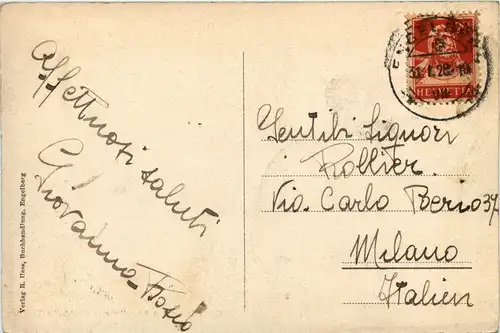 Affettuosi saluti
Giovanna
Verlag R. Hess, Buchhandlung, Engelberg
ENGELBERG
31.I.28
HELVETIA
Gentili Signori
Rollier
Via Carlo
Milano
Italien